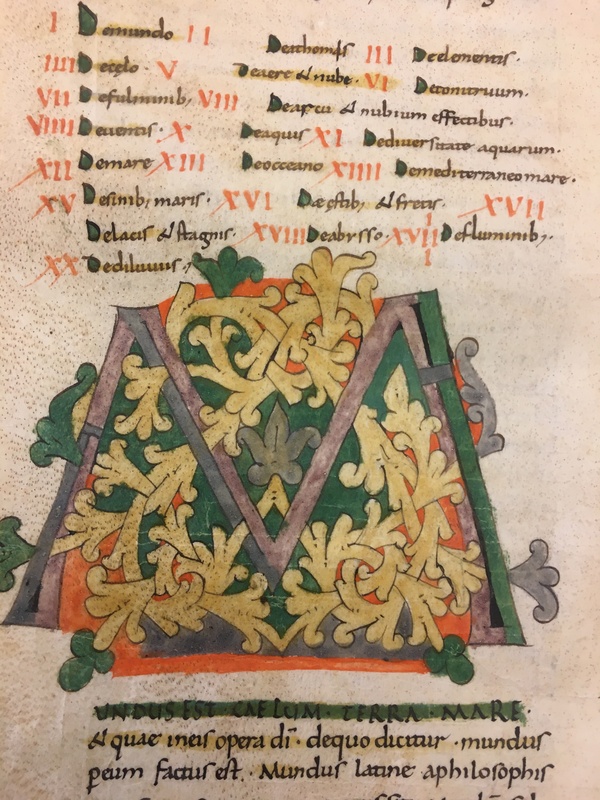 I Demundo II Deathomis III Deelementis.
IIII Decęlo. V Deaere & nube. VI Detonitruum.
VII Defulminib; VIII Dearcu & nubium effectibus.
VIIII Deventis. X Deaquis XI Dediversitate aquarum.
XII Demare XIII Deocceano XIIII Demediterraneo mare.
XV Desinib; maris. XVI Dęęstib; & fretis. XVII
Delacis & stagnis. XVIII Deabysso. XVIIII Defluminib;.
XX Dediluviis.
M
UNDUS EST CAELUM · TERRA · MARE ·
& quae ineis opera di · dequo dicitur · mundus
peum factus est. Mundus latine aphilosophis